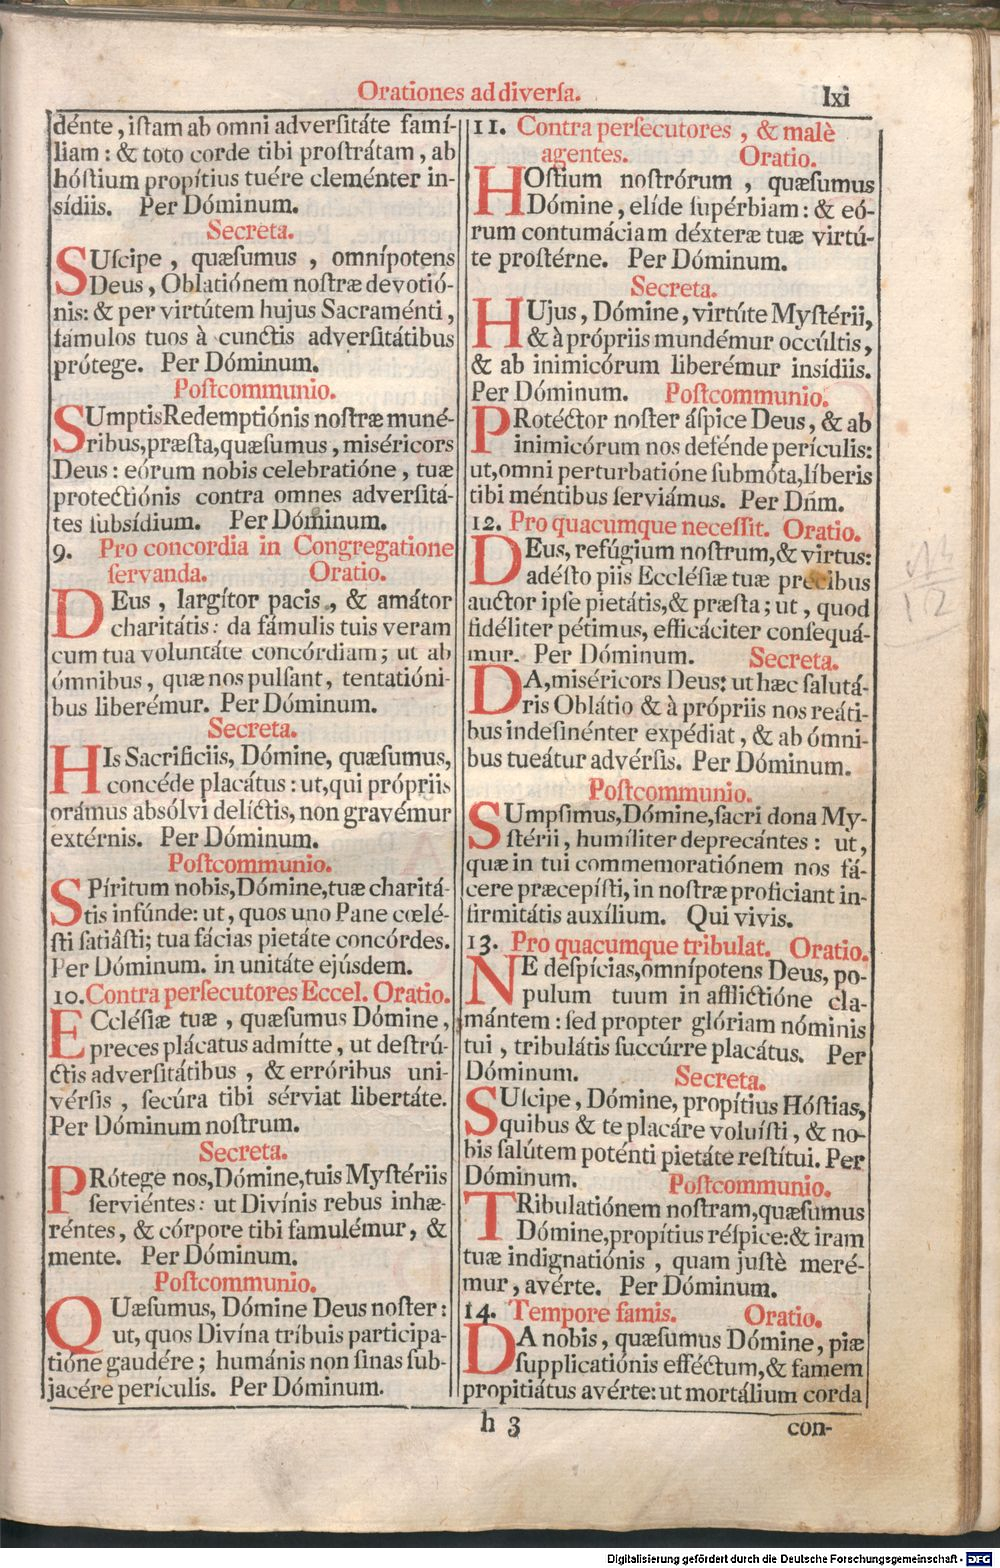 Orationes ad diversa. lxi
dénte, iſtam ab omni adverſitáte famí-
liam: & toto corde tibi proſtrátam, ab
hóſtium propítius tuére cleménter in-
sídiis. Per Dóminum.
Secreta.
SUſcipe, quæſumus, omnípotens
Deus, Oblatiónem noſtræ devotió-
nis: & per virtútem hujus Sacraménti,
fámulos tuos à cunctis adverſitátibus
prótege. Per Dóminum.
Poſtcommunio.
SUmptis Redemptiónis noſtræ muné-
ribus, præſta, quæſumus, miséricors
Deus: eórum nobis celebratióne, tuæ
protectiónis contra omnes adverſitá-
tes ſubsídium. Per Dóminum.
9. Pro concordia in Congregatione
ſervanda. Oratio.
DEus, largítor pacis, & amátor
charitátis: da fámulis tuis veram
cum tua voluntáte concórdiam; ut ab
ómnibus, quæ nos pulſant, tentatióni-
bus liberémur. Per Dóminum.
Secreta.
HIs Sacrificiis, Dómine, quæſumus,
concéde placátus: ut, qui própriis
orámus absólvi delíctis, non gravémur
extérnis. Per Dóminum.
Poſtcommunio.
SPíritum nobis, Dómine, tuæ charitá-
tis infúnde: ut, quos uno Pane cœlé-
ſti ſatiâſti; tua fácias pietáte concórdes.
Per Dóminum. in unitáte ejúsdem.
10. Contra perſecutores Eccel. Oratio.
ECcléſiæ tuæ, quæſumus Dómine,
preces plácatus admítte, ut deſtrú-
ctis adverſitátibus, & erróribus uni-
vérſis, ſecúra tibi sérviat libertáte.
Per Dóminum noſtrum.
Secreta.
PRótege nos, Dómine, tuis Myſtériis
ſerviéntes: ut Divínis rebus inhæ-
réntes, & córpore tibi famulémur, &
mente. Per Dóminum.
Poſtcommunio.
QUæſumus, Dómine Deus noſter:
ut, quos Divína tríbuis participa-
tióne gaudére; humánis non ſinas ſub-
jacére perículis. Per Dóminum.
11. Contra perſecutores, & malè
agentes. Oratio.
HOſtium noſtrórum, quæſumus
Dómine, elíde ſupérbiam: & eó-
rum contumáciam déxteræ tuæ virtú-
te proſtérne. Per Dóminum.
Secreta.
HUjus, Dómine, virtúte Myſtérii,
& à própriis mundémur occúltis,
& ab inimicórum liberémur insídiis.
Per Dóminum. Poſtcommunio.
PRotéctor noſter áſpice Deus, & ab
inimicórum nos defénde perículis:
ut, omni perturbatióne ſubmóta, líberis
tibi méntibus ſerviámus. Per Dñm.
12. Pro quacumque neceſſit. Oratio.
DEus, refúgium noſtrum, & virtus:
adéſto piis Eccléſiæ tuæ precibus
auctor ipſe pietátis, & præſta; ut, quod
fidéliter pétimus, efficáciter conſequá-
mur. Per Dóminum. Secreta.
DA, miséricors Deus: ut hæc ſalutá-
ris Oblátio & à própriis nos reáti-
bus indeſinénter expédiat, & ab ómni-
bus tueátur advérſis. Per Dóminum.
Poſtcommunio.
SUmpſimus, Dómine, ſacri dona My-
ſtérii, humíliter deprecántes: ut,
quæ in tui commemoratiónem nos fá-
cere præcepíſti, in noſtræ proficiant in-
firmitátis auxílium. Qui vivis.
13. Pro quacumque tribulat. Oratio.
NE deſpícias, omnípotens Deus, po-
pulum tuum in afflictióne cla-
mántem: ſed propter glóriam nóminis
tui, tribulátis ſuccúrre placátus. Per
Dóminum. Secreta.
SUſcipe, Dómine, propítius Hóſtias,
quibus & te placáre voluíſti, & no-
bis ſalútem poténti pietáte reſtítui. Per
Dóminum. Poſtcommunio.
TRibulatiónem noſtram, quæſumus
Dómine, propítius réſpice: & iram
tuæ indignatiónis, quam juſtè meré-
mur, avérte. Per Dóminum.
14. Tempore famis. Oratio.
DA nobis, quæſumus Dómine, piæ
ſupplicatiónis efféctum, & famem
propitiátus avérte: ut mortálium corda
h 3 con-
12
Digitalisierung gefördert durch die Deutsche Forschungsgemeinschaft - DFG